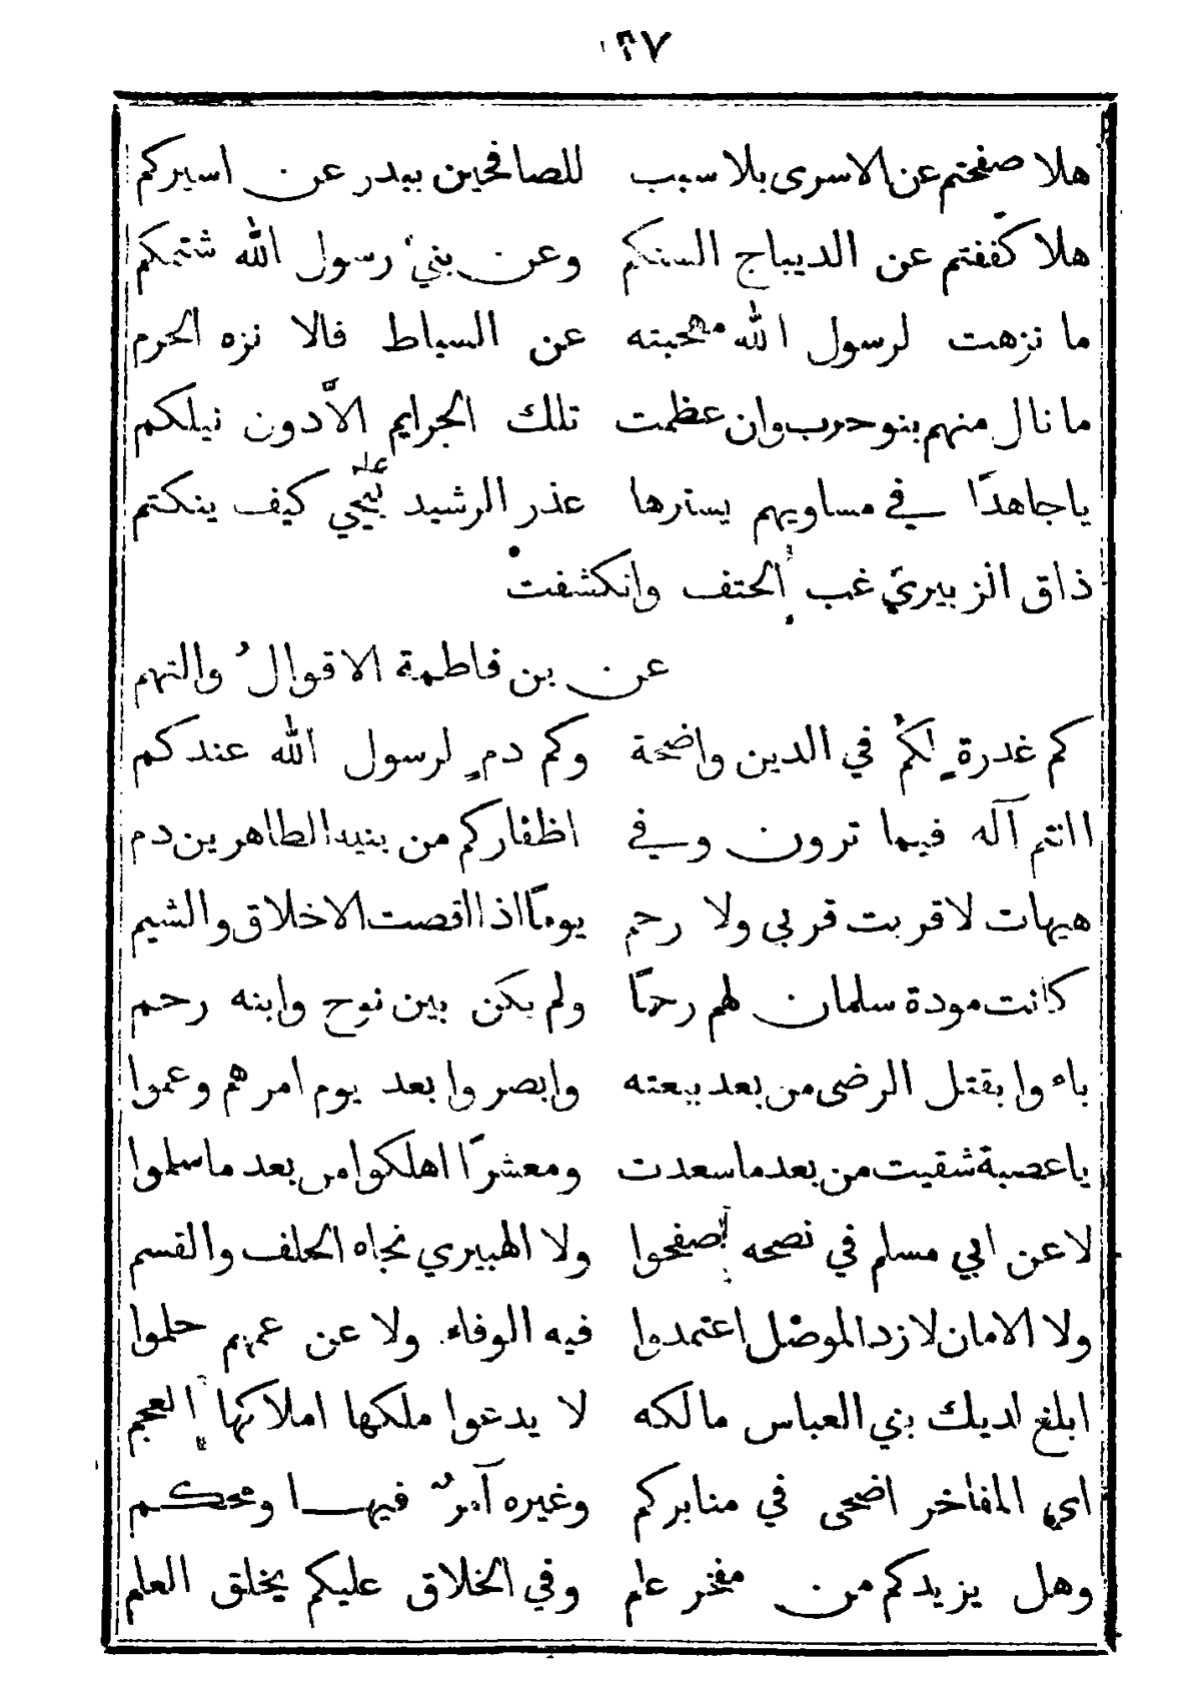 هلا صفحتم عن الاسرى بلا سبب للصافحين ببدر عن اسيركم
هلا كففتم عن الديباج السنكم وعن بني رسول الله شتمكم
ما نزهت لرسول الله مهجته عن السياط فالا نزه الحرم
ما نال منهم بنو حرب وان عظمت تلك الجرايم الّا دون نيلكم
يا جاهدًا في مساويهم يسترها عذر الرشيد بيحيي كيف ينكتم
ذاق الزبيري غب الحتف وانكشفت
عن بن فاطمة الاقوالُ والتهم
كم غدرةٍ لكمُ في الدين واضحة وكم دمٍ لرسول الله عندكم
اانتم آله فيما ترون وفي اظفاركم من بنيه الطاهرين دم
هيهات لا قربت قربي ولا رحم يومًا اذا اقصت الاخلاق والشيم
كانت مودة سلمان لهم رحمًا ولم يكن بين نوح وابنه رحم
باءوا بقتل الرضى من بعد بيعته وابصروا بعد يوم امرهم وعموا
يا عصبة شقيت من بعد ما سعدت ومعشرًا اهلكوا من بعد ما سلموا
لا عن ابي مسلم في نصحه صفحوا ولا الهبيري نجاه الحلف والقسم
ولا الامان لازد الموصل اعتمدوا فيه الوفاء ولا عن عمهم حلموا
ابلغ لديك بني العباس مالكه لا يدعوا ملكها املاكها العجم
اي المفاخر اضحى في منابركم وغيره آمرٌ فيها ومحكم
وهل يزيدكم من مفخر علم وفي الخلاق عليكم يخلق العلم